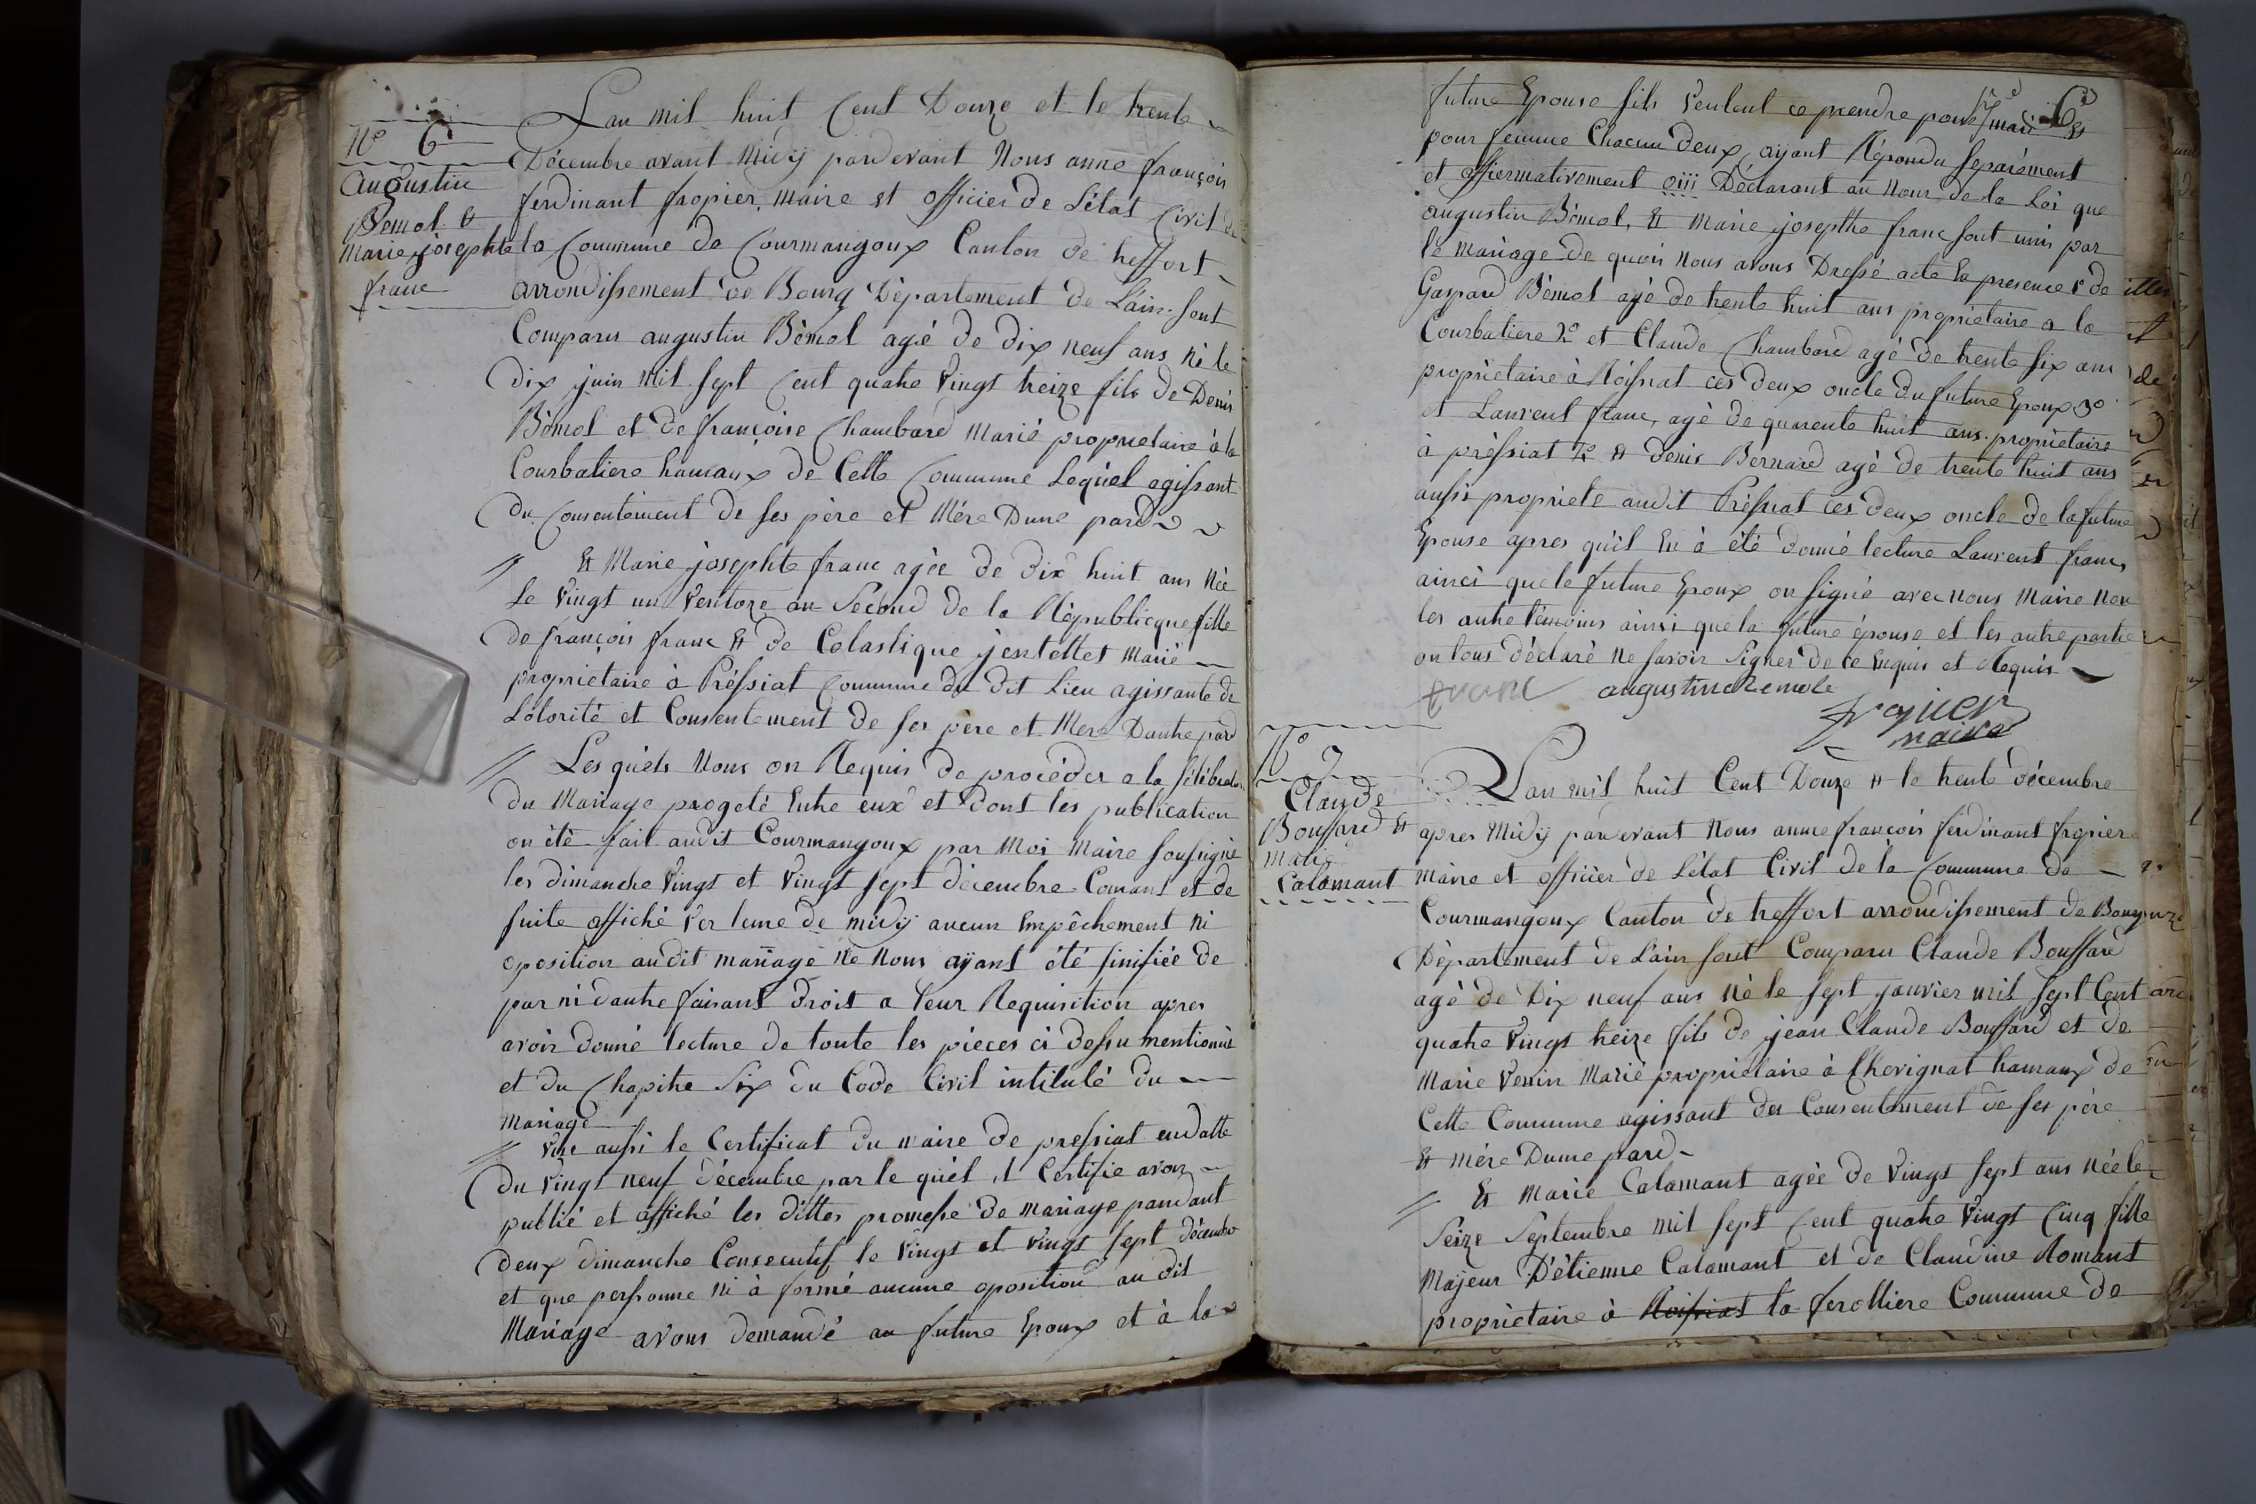 N° 6
Augustin
Bémol &
Marie josephte
franc
Lan mil huit Cent Douze et le trente
Décembre avant Midÿ pardevant Nous anne françois
ferdinant fropier, Maire et officier de Létat Civil de
la Commune de Courmangoux Canton de treffort
arrondissement de Bourg Département de Lain sont
Comparu augustin Bémol agé de dix neuf ans né le
dix juin mil sept Cent quatre Vingt treize fils de Denis
Bémol et de françoise Chambard Marié proprietaire à la
Courbatiere hamaux de Cette Commune Lequel agissant
du Consentement de ses père et Mére Dune pard
// & Marie josephte franc agée de dix huit ans Née
Le Vingt un Ventoze an Second de la Républicque fille
de françois franc & de Colastique jentettet Marié
proprietaire à Préssiat Commune du dit Lieu agissante de
Lotorité et Consentement de ses père et Mere Dautre pard
// Les quels Nous on Requis de procéder a la Célébration
du Mariage progeté Entre eux et dont les publication
on été fait audit Courmangoux par Moi Maire soussigné
les dimanche Vingt et Vingt sept décembre Courant et de
suite affiché Ver leure de midÿ aucun Empêchement ni
oposition audit mariage Ne Nous aÿant été sinifiée de
par ni dautre faisant droit a leur Requisition apres
avoir donné lecture de toute les piéces ci dessu mentionnée
et du Chapitre Six du Code Civil intitulé du
Mariage
// Vue aussi le Certificat du maire de pressiat endatte
du Vingt neuf décembre par le quel il Certifie avoir
publié et affiché les dittes promesse de mariage pandant
deux dimanche Consecutif le Vingt et Vingt sept décembre
et que personne ni à formé aucune oposition au dit
Mariage avons demandé au future Epoux et à la
6
future Epouse sils Veulent ce prendre pour mari &
pour femme Chacun deux ayant Répondu separément
et affirmativement oiii Declarant au Nom de la Loi que
augustin Bémol, & Marie josepthe franc sont unis par
le mariage de quoi Nous avons Dressé acte En presence de
Gaspard Bémol agé de trente huit ans proprietaire a la
Courbatiere 2° et Claude Chambard agé de trente six ans
propriétaire à Roissiat ces deux oncle du future Epoux 3°
et Laurent franc, agé de quarente huit ans proprietaire
à préssiat & denis Bernard agé de trente huit ans
aussi propriete audit Préssiat ces deux oncle de la future
Epouse apres quil En à été donné lecture Laurent franc,
ainci que le future Epoux on signé avec nous Maire Non
les autre témoins ainsi que la future épouse et les autre partie
on tous déclaré Ne savoir signer de ce Enquis et Requis
franc augustin bemole
fropier
maire
N° 7
Claude
Bouffard &
Marie
Calamant
Lan mil huit Cent Douze & le trente décembre
apres Midÿ pardevant Nous anne françois ferdinant fropier
maire et officier de Létat Civil de la Commune de
Courmangoux Canton de treffort arrondissement de Bourg
Département de Lain sont Comparu Claude Bouffard
agé de Dix neuf ans Né le sept janvier mil sept Cent
quatre Vingt treize fils de jean Claude Bouffard et de
Marie Venin Marié propriétaire à Chevignat hamaux de
Cette Commune agissant du Consentement de ses père
& mére Dune pard
// & Marie Calamant agée de Vingt sept ans Née le
Seize Septembre mil sept Cent quatre Vingt Cinq fille
Majeur D'étienne Calamant et de Claudine Romant
propriétaire à Roissiat la ferolliere Commune de